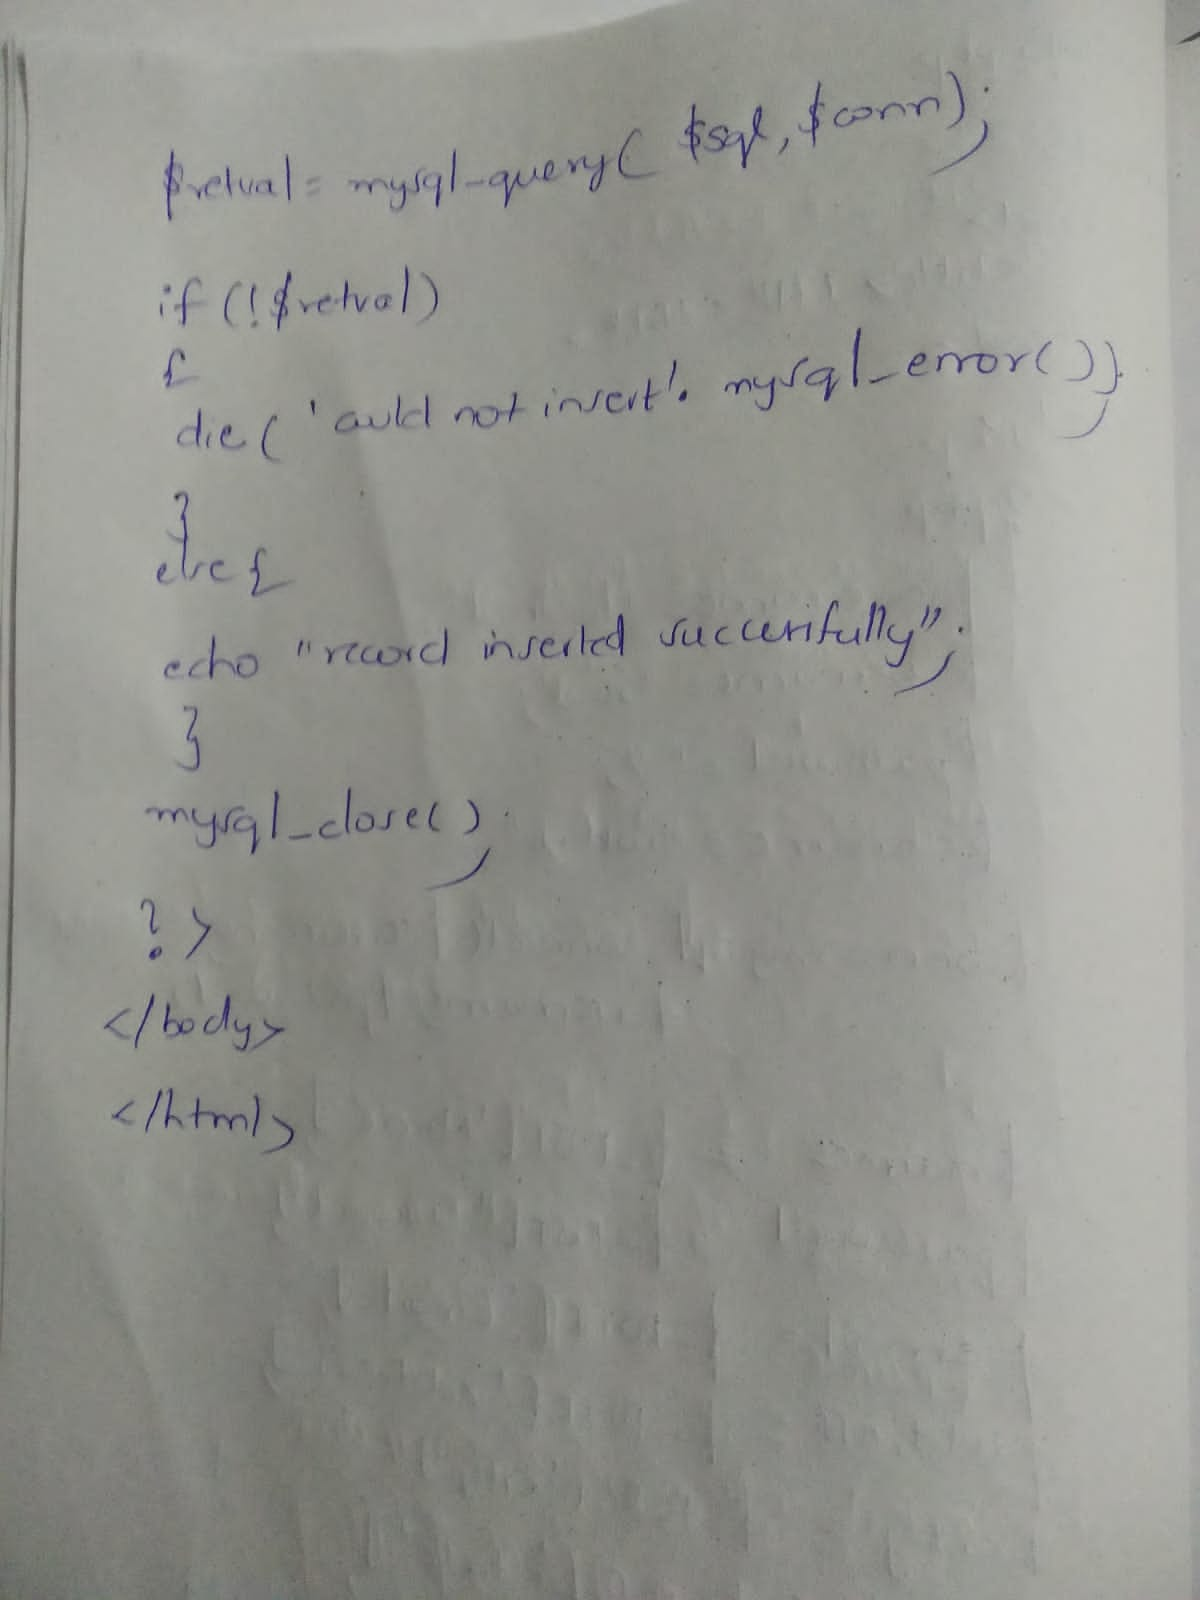 $retval = mysql_query( $sql, $conn);
if (!$retval)
{
die ( 'could not insert'. mysql_error());
}
else {
echo "record inserted successfully";
}
mysql_close();
?>
</body>
</html>